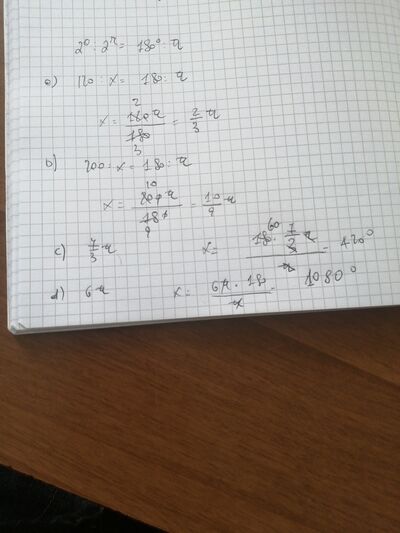 2° : 2ʳ = 180° : π
a) 120 : x = 180 : π
2
x = 120 π / 180 = 2/3 π
3
b) 200 : x = 180 : π
10
x = 200 π / 180 = 10/9 π
9
c) 7/3 π x = 180 · 7/3 π / π = 420°
60
d) 6 π x = 6π · 180 / π = 1080°